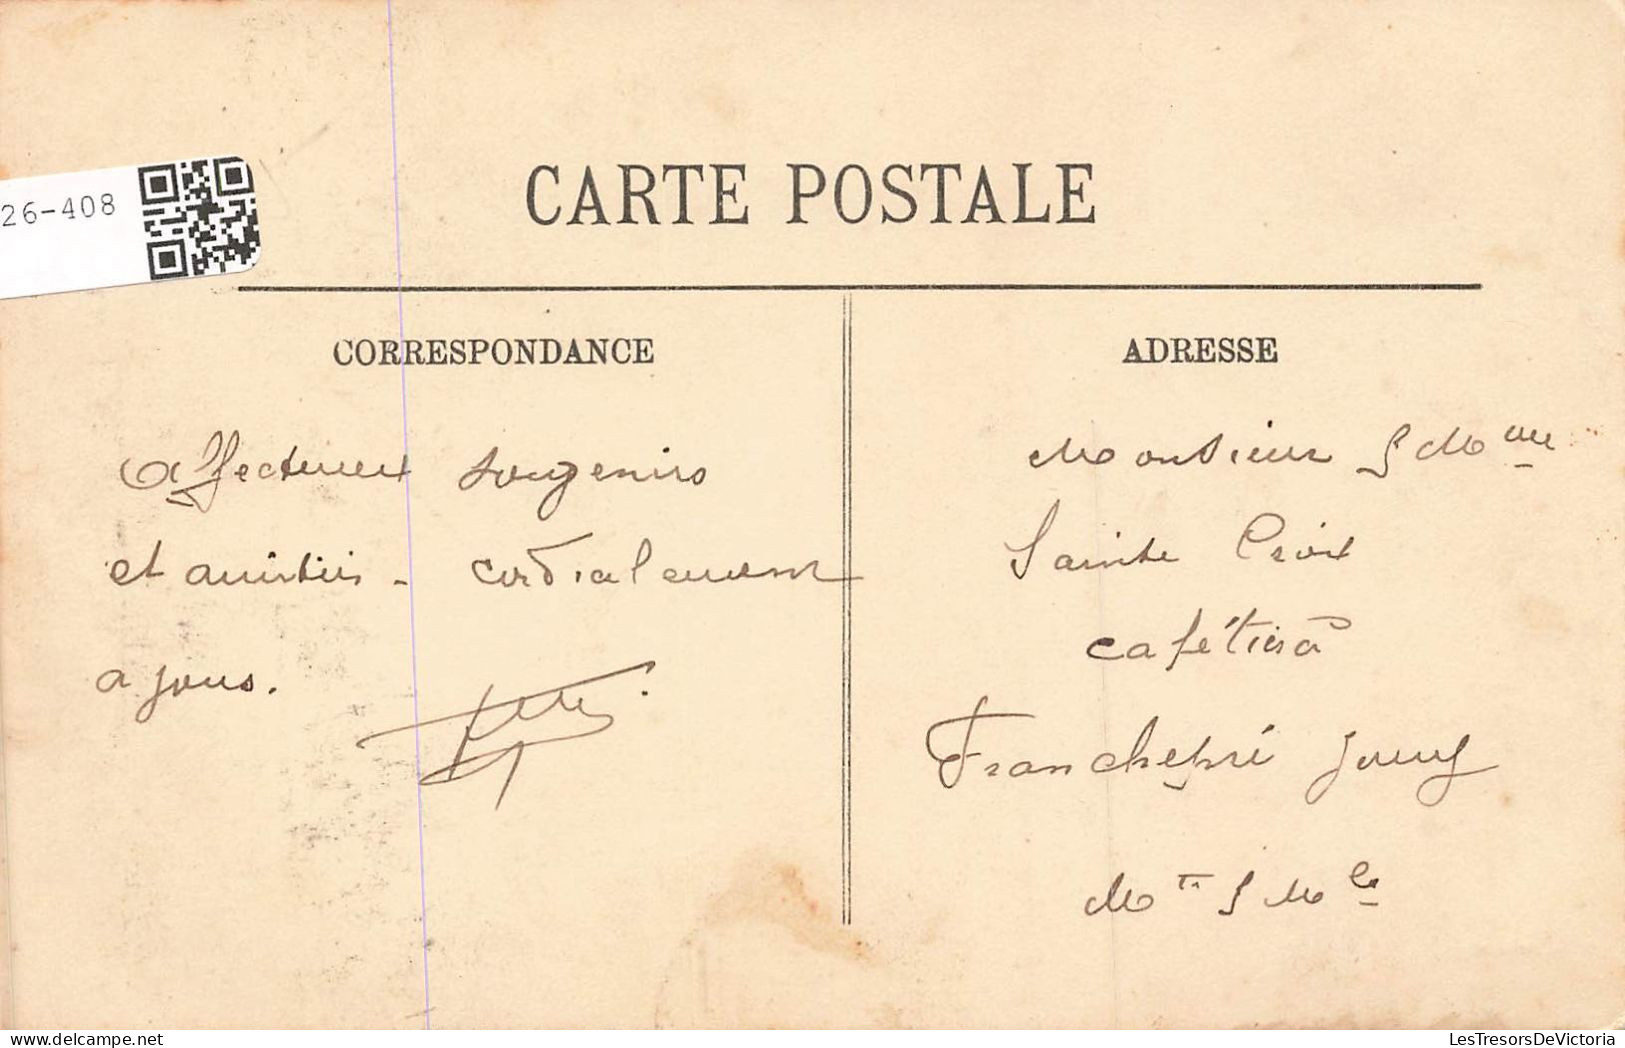 26-408
CARTE POSTALE
CORRESPONDANCE
Affectueux souvenirs
et amitiés - cordialement
a jous.
ADRESSE
Monsieur & Mme
Sainte Croix
cafétier à
Franchepré Joeuf
Mthe & Mlle
LesTresorsDeVictoria